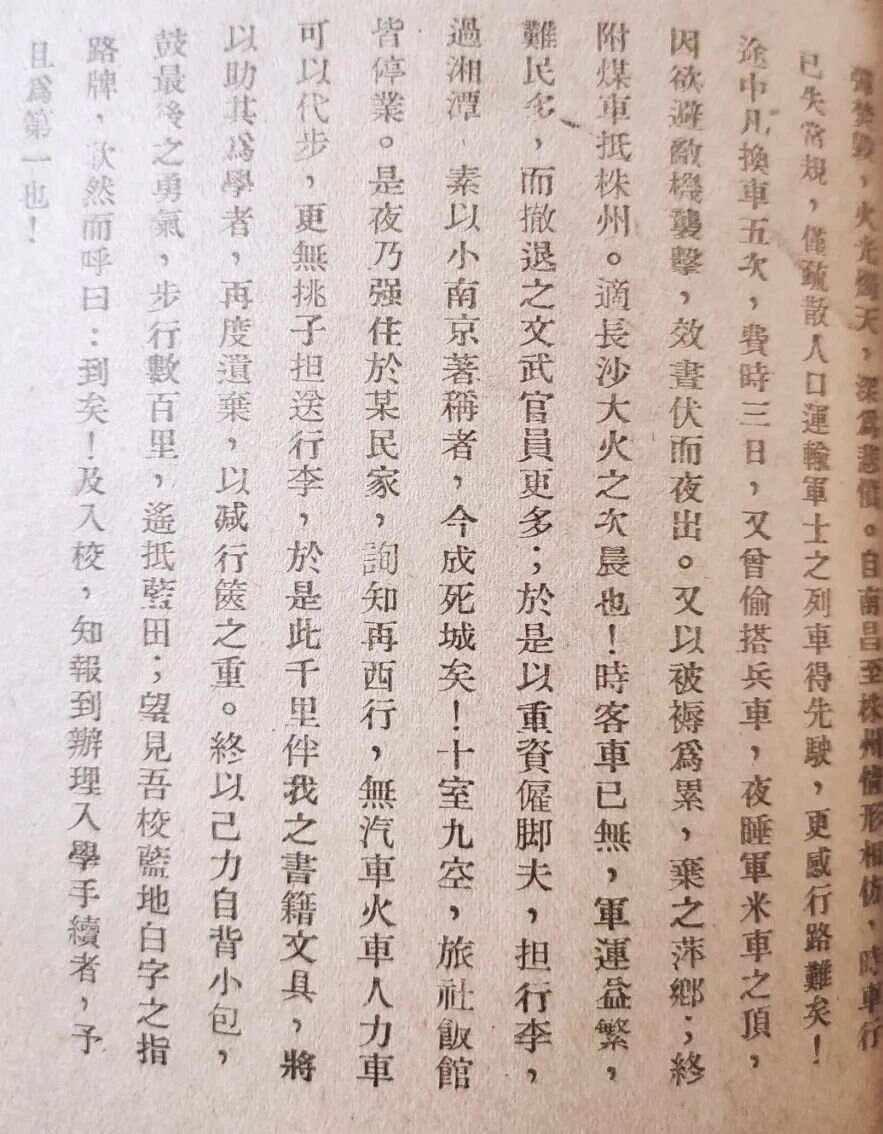 焚毀，火光燭天，深爲悲憤。自南昌至株州情形相仿，時車行
已失常規，僅疏散人口運輸軍士之列車得先駛，更感行路難矣！
途中凡換車五次，費時三日，又曾偷搭兵車，夜睡軍米車之頂，
因欲避敵機襲擊，效晝伏而夜出。又以被褥爲累，棄之萍鄉；終
附煤車抵株州。適長沙大火之次晨也！時客車已無，軍運益繁，
難民多，而撤退之文武官員更多；於是以重資僱脚夫，担行李，
過湘潭，素以小南京著稱者，今成死城矣！十室九空，旅社飯館
皆停業。是夜乃强住於某民家，詢知再西行，無汽車火車人力車
可以代步，更無挑子担送行李，於是此千里伴我之書籍文具，將
以助其爲學者，再度遺棄，以减行篋之重。終以己力自背小包，
鼓最後之勇氣，步行數百里，遙抵藍田；望見吾校藍地白字之指
路牌，歡然而呼曰：到矣！及入校，知報到辦理入學手續者，予
且爲第一也！